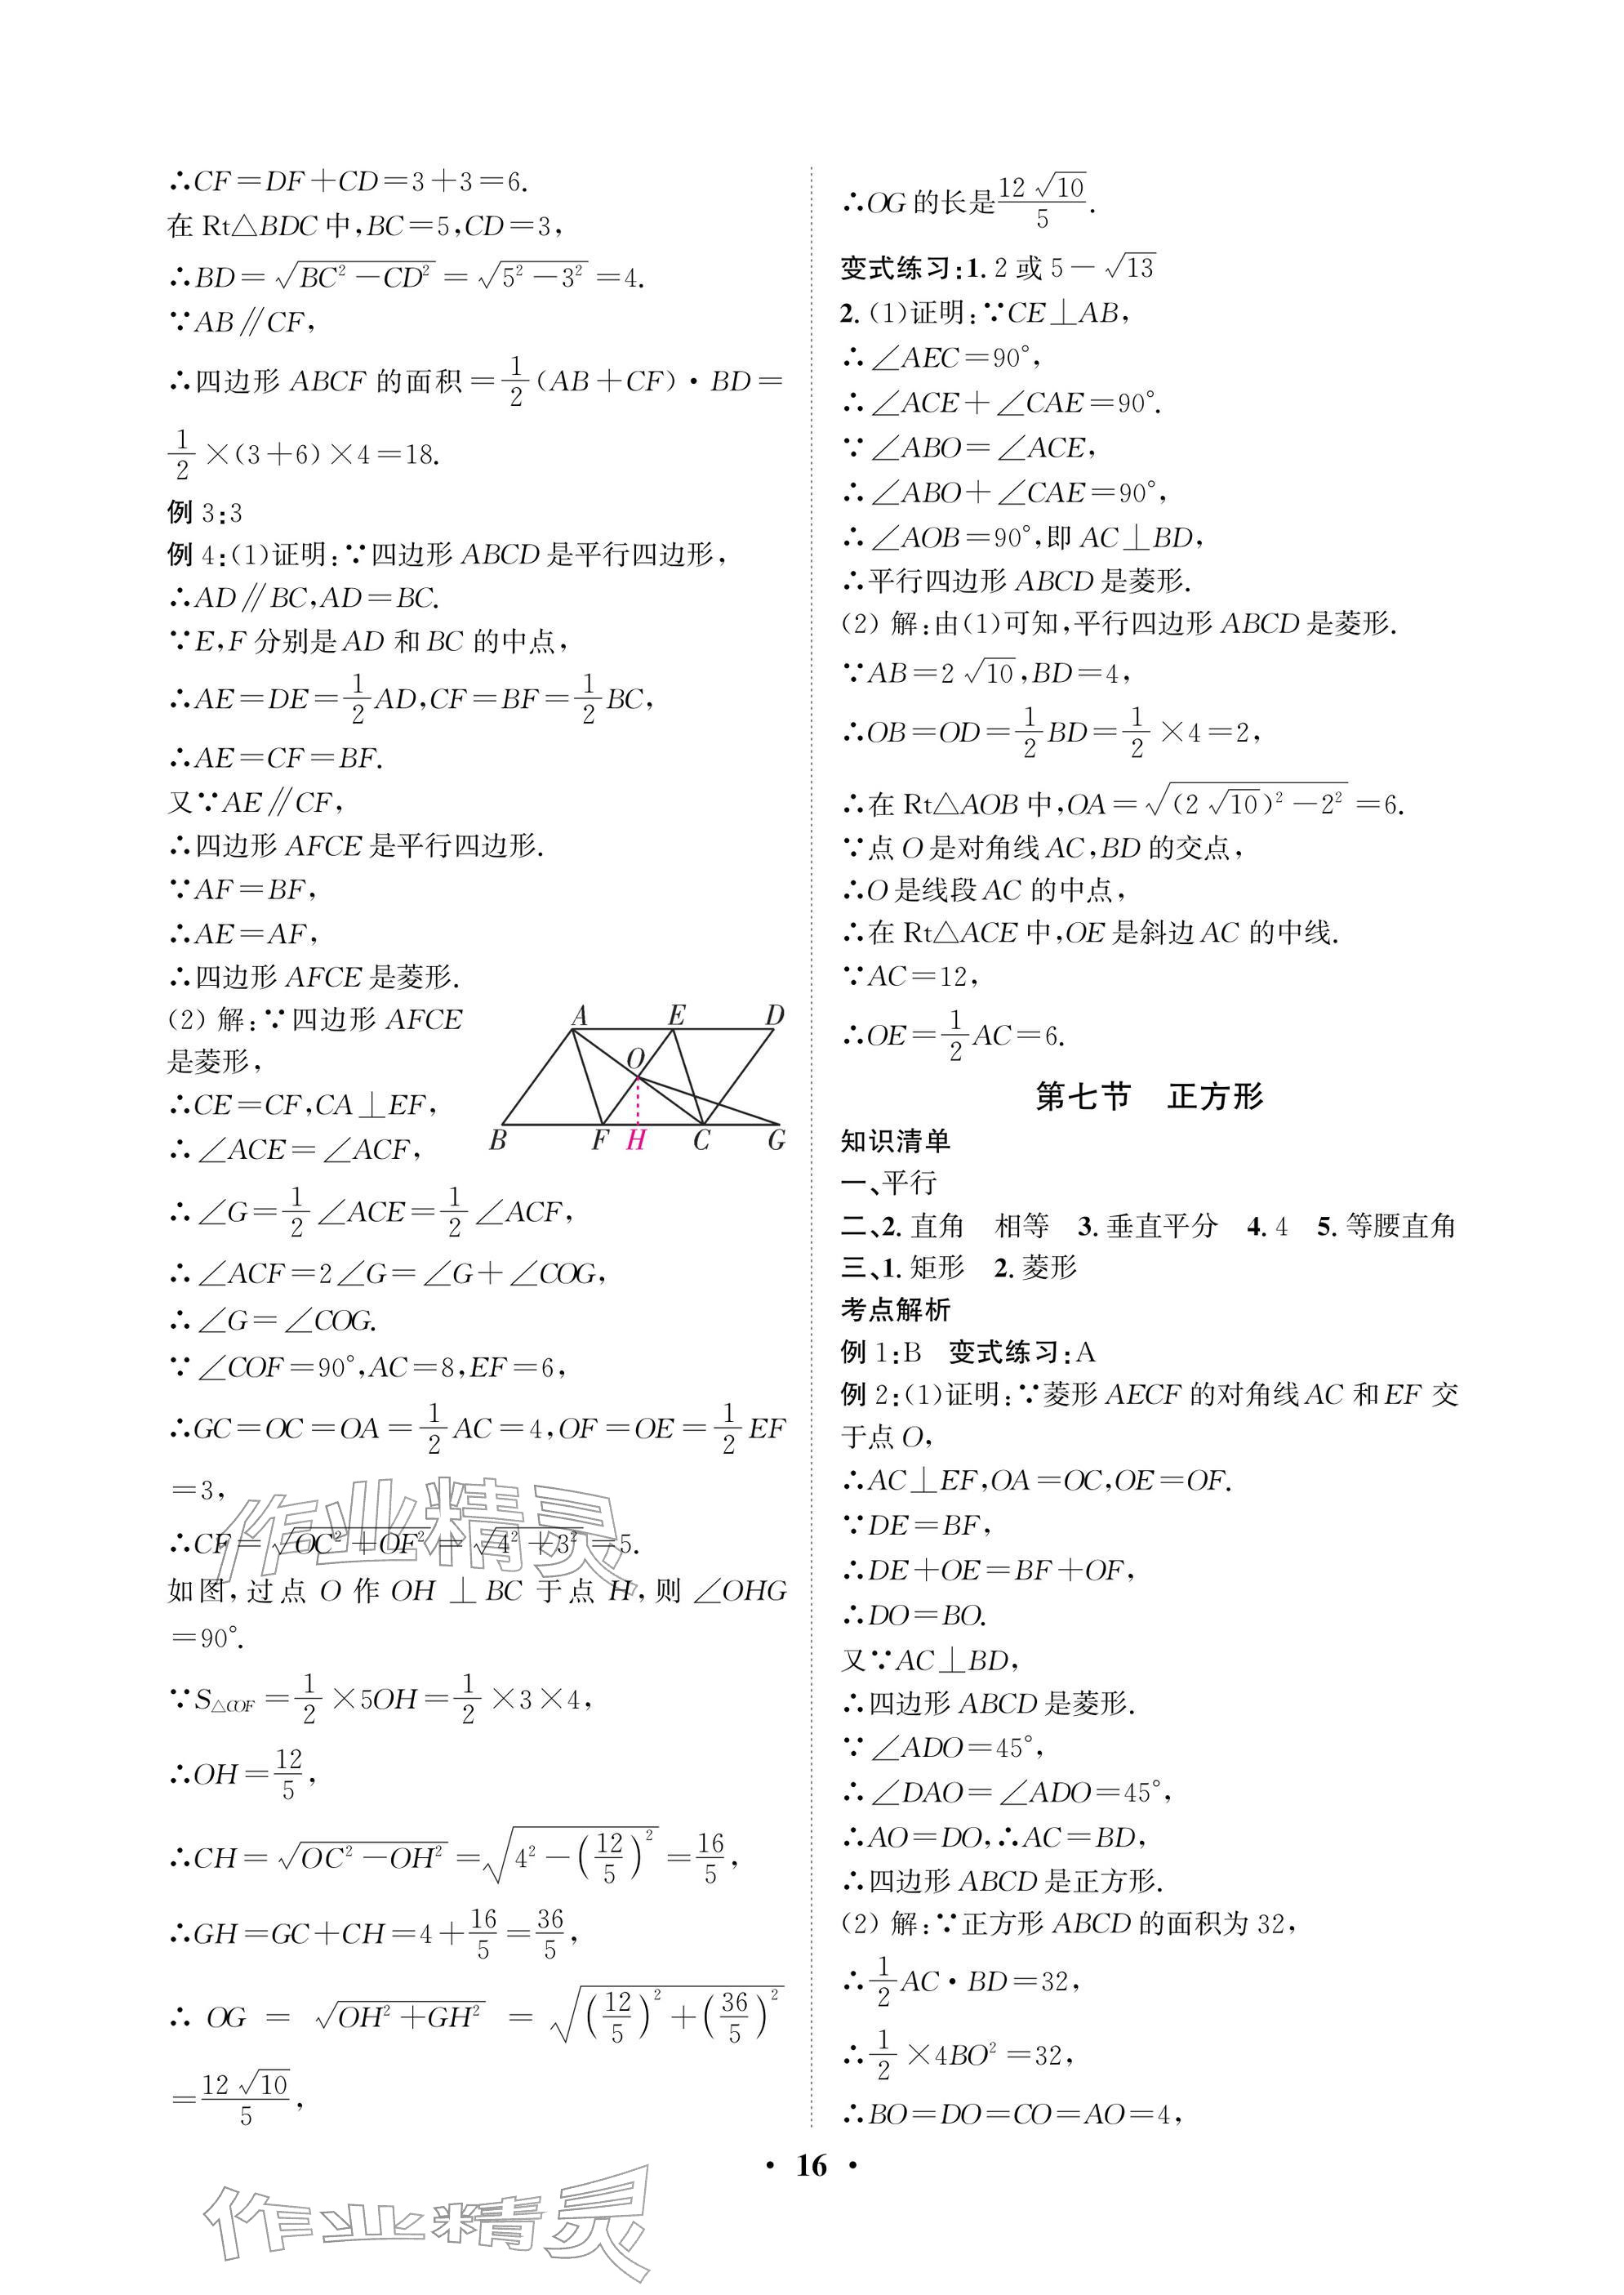 ∴CF=DF+CD=3+3=6.
在 Rt△BDC 中,BC=5,CD=3,
∴BD=√(BC²-CD²)=√(5²-3²)=4.
∵AB∥CF,
∴四边形 ABCF 的面积=1/2(AB+CF)·BD=
1/2×(3+6)×4=18.
例 3:3
例 4:(1)证明:∵四边形 ABCD 是平行四边形,
∴AD∥BC,AD=BC.
∵E,F 分别是 AD 和 BC 的中点,
∴AE=DE=1/2AD,CF=BF=1/2BC,
∴AE=CF=BF.
又∵AE∥CF,
∴四边形 AFCE 是平行四边形.
∵AF=BF,
∴AE=AF,
∴四边形 AFCE 是菱形.
(2) 解:∵四边形 AFCE
是菱形,
∴CE=CF,CA⊥EF,
∴∠ACE=∠ACF,
A E D
O
B F H C G
∴∠G=1/2∠ACE=1/2∠ACF,
∴∠ACF=2∠G=∠G+∠COG,
∴∠G=∠COG.
∵∠COF=90°,AC=8,EF=6,
∴GC=OC=OA=1/2AC=4,OF=OE=1/2EF
=3,
∴CF=√(OC²+OF²)=√(4²+3²)=5.
如图,过点 O 作 OH⊥BC 于点 H,则∠OHG
=90°.
∵S△COF=1/2×5OH=1/2×3×4,
∴OH=12/5,
∴CH=√(OC²-OH²)=√(4²-(12/5)²)=16/5,
∴GH=GC+CH=4+16/5=36/5,
∴OG=√(OH²+GH²)=√((12/5)²+(36/5)²)
=12√10/5,
∴OG 的长是12√10/5.
变式练习:1. 2 或 5-√13
2. (1)证明:∵CE⊥AB,
∴∠AEC=90°,
∴∠ACE+∠CAE=90°.
∵∠ABO=∠ACE,
∴∠ABO+∠CAE=90°,
∴∠AOB=90°,即 AC⊥BD,
∴平行四边形 ABCD 是菱形.
(2) 解:由(1)可知,平行四边形 ABCD 是菱形.
∵AB=2√10,BD=4,
∴OB=OD=1/2BD=1/2×4=2,
∴在 Rt△AOB 中,OA=√((2√10)²-2²)=6.
∵点 O 是对角线 AC,BD 的交点,
∴O 是线段 AC 的中点,
∴在 Rt△ACE 中,OE 是斜边 AC 的中线.
∵AC=12,
∴OE=1/2AC=6.
第七节 正方形
知识清单
一、平行
二、2. 直角 相等 3. 垂直平分 4. 4 5. 等腰直角
三、1. 矩形 2. 菱形
考点解析
例 1:B 变式练习:A
例 2:(1)证明:∵菱形 AECF 的对角线 AC 和 EF 交
于点 O,
∴AC⊥EF,OA=OC,OE=OF.
∵DE=BF,
∴DE+OE=BF+OF,
∴DO=BO.
又∵AC⊥BD,
∴四边形 ABCD 是菱形.
∵∠ADO=45°,
∴∠DAO=∠ADO=45°,
∴AO=DO,∴AC=BD,
∴四边形 ABCD 是正方形.
(2) 解:∵正方形 ABCD 的面积为 32,
∴1/2AC·BD=32,
∴1/2×4BO²=32,
∴BO=DO=CO=AO=4,
· 16 ·
作业精灵
作业精灵